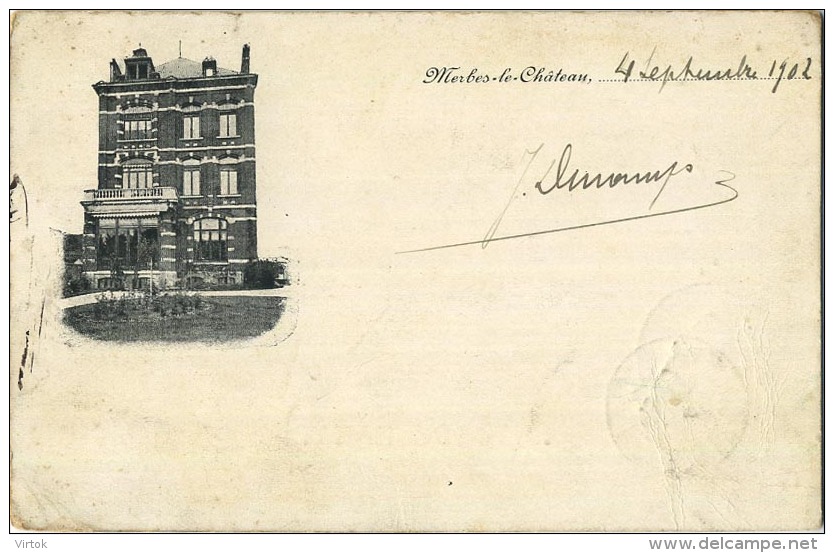 Merbes-le-Château, 4 Septembre 1902
J. Descamps
Virtok
www.delcampe.net